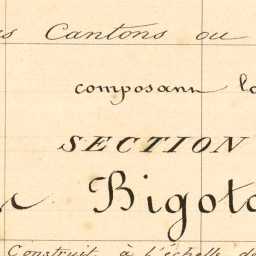 Cantons ou
composant
SECTION
Bigot
Construit à l'échelle de